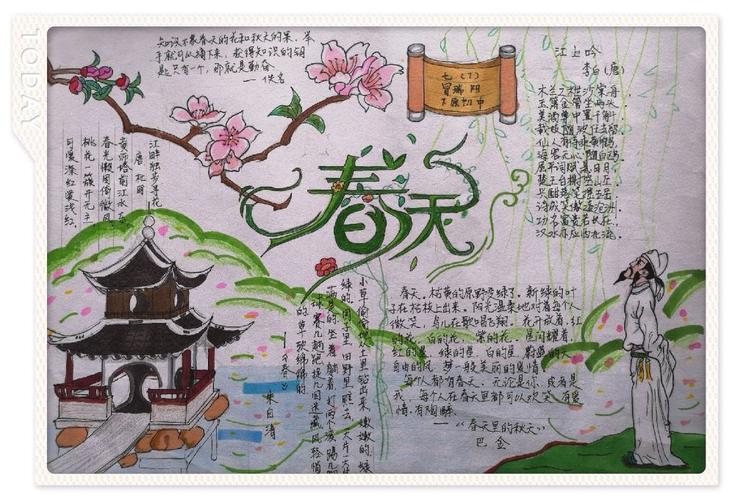 TODAY
知识不象春天的花和秋天的果，举
手就可以摘下来，获得知识的钥
匙只有一个，那就是勤奋。
——佚名
七（7）
冒瑞阳
江上吟
李白(唐)
木兰之枻沙棠舟，
玉箫金管坐两头。
美酒樽中置千斛，
载妓随波任去留。
仙人有待乘黄鹤，
海客无心随白鸥。
屈平词赋悬日月，
楚王台榭空山丘。
兴酣落笔摇五岳，
诗成笑傲凌沧洲。
功名富贵若长在，
汉水亦应西北流。
江畔独步寻花
唐 杜甫
黄师塔前江水东，
春光懒困倚微风。
桃花一簇开无主，
可爱深红爱浅红。
春天
小草偷偷地从土里钻出来，嫩嫩的，绿
绿的。园子里，田野里，瞧去，一大片一大片
满是的。坐着，躺着，打两个滚，踢几脚
球，赛几趟跑，捉几回迷藏。风轻悄悄
的，草软绵绵的。
——《春》
朱自清
春天，枯黄的原野变绿了。新绿的叶
子在枯枝上长出来。阳光温柔地对着每个人
微笑，鸟儿在歌唱飞翔。花开放着，红
的花，白的花，紫的花。星闪耀着，
红的星，绿的星，白的星。蔚蓝的天，
自由的风，梦一般美丽的爱情。
每个人都有春天。无论是你，或者是
我，每个人在春天里都可以欢笑，有爱
情，有陶醉。
——《春天里的秋天》
巴金